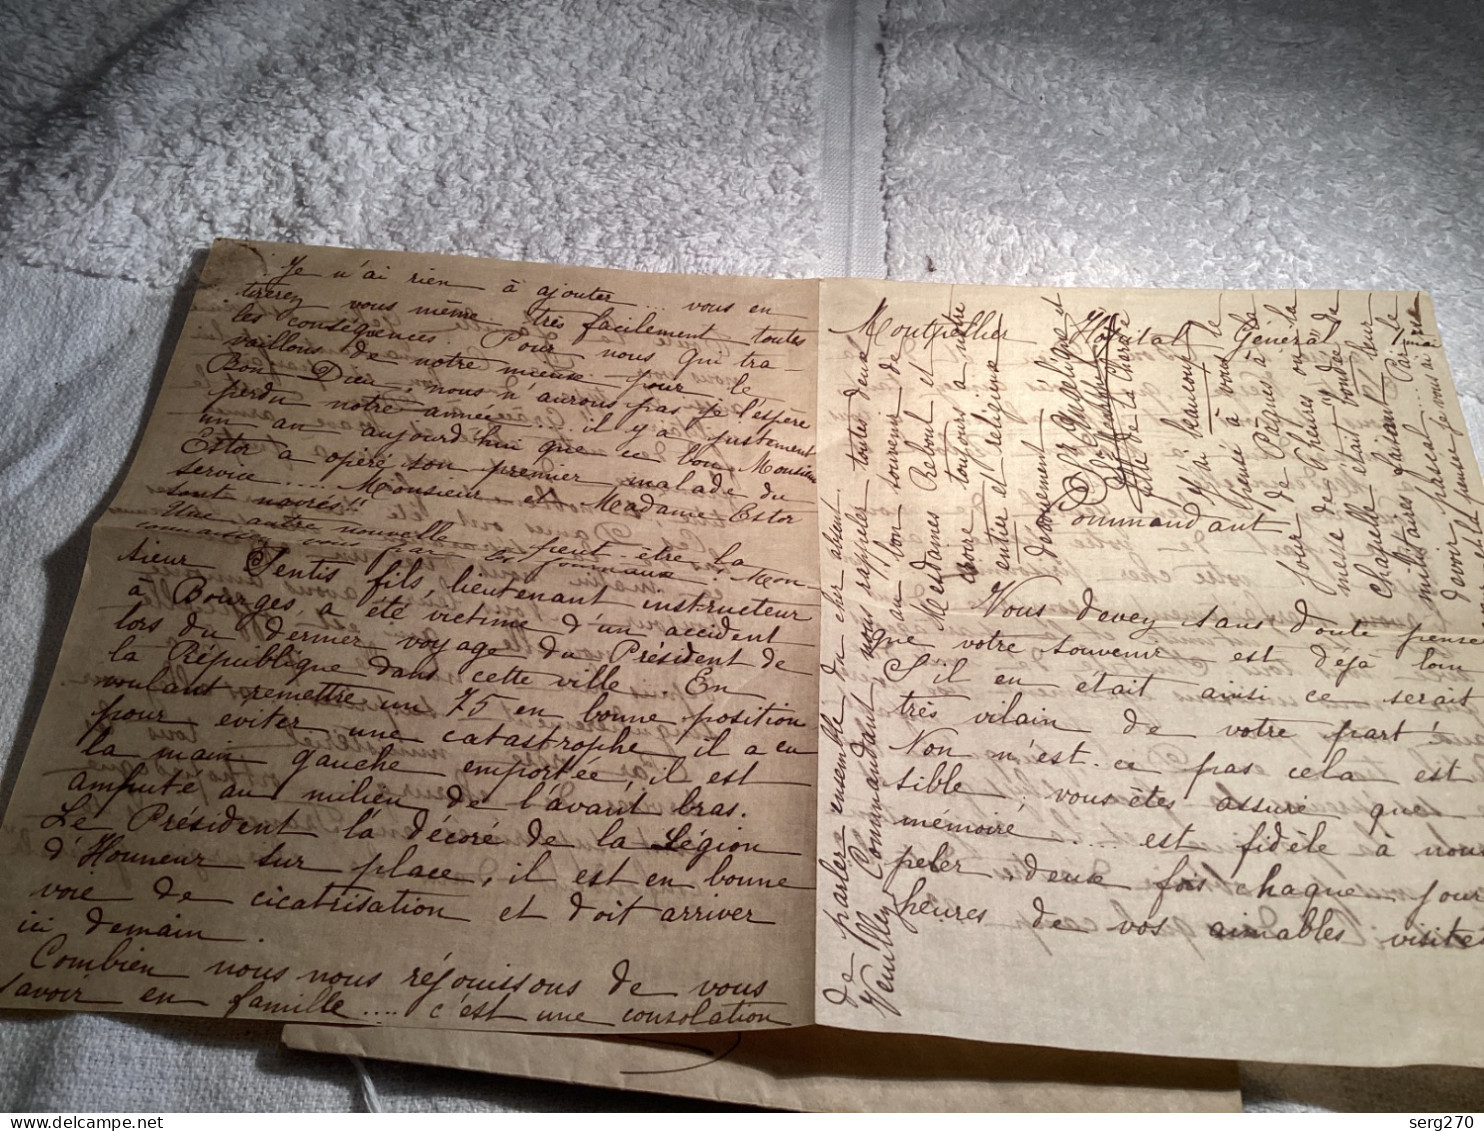 Je n'ai rien à ajouter ... vous en
tirerez vous même très facilement toutes
les conséquences. Pour nous qui tra-
vaillons de notre mieux pour le
Bon Dieu, nous n'aurons pas je l'espère
perdu notre année ... il y a justement
un an aujourd'hui que ce bon Monsieur
Estor a opéré son premier malade du
service .... Monsieur et Madame Estor
sont navrés!!
Une autre nouvelle peut-être la
connaissez vous par les journaux: Mon-
sieur Sentis fils, lieutenant instructeur
à Bourges, a été victime d'un accident
lors du dernier voyage du Président de
la République dans cette ville. En
voulant remettre un 75 en bonne position
pour eviter une catastrophe, il a eu
la main gauche emportée, il est
amputé au milieu de l'avant bras.
Le Président l'a décoré de la Légion
d'Honneur sur place, il est en bonne
voie de cicatrisation et doit arriver
ici demain.
Combien nous nous réjouissons de vous
savoir en famille .... c'est une consolation
Montpellier Hôpital Général
Commandant,
Vous devez sans doute penser
que votre souvenir est déjà loin
S'il en était ainsi ce serait
très vilain de votre part!
Non n'est-ce pas cela est
sible; vous êtes assuré que
mémoire .... est fidèle à nous
peler deux fois chaque jour
heures de vos aimables visites
de parler ensemble du cher absent.
Veuillez Commandant, nous rappeler toutes deux
au bon souvenir de
Mesdames Rebout et
croire toujours à notre
entier et religieux
dévouement
Sr Angélique et
fille de la Charité
J'ai beaucoup
pensée à vous le
jour de Pâques à la
messe de 6 heures où la
chapelle était bondée de
militaires faisant leur
devoir pascal ... Par le